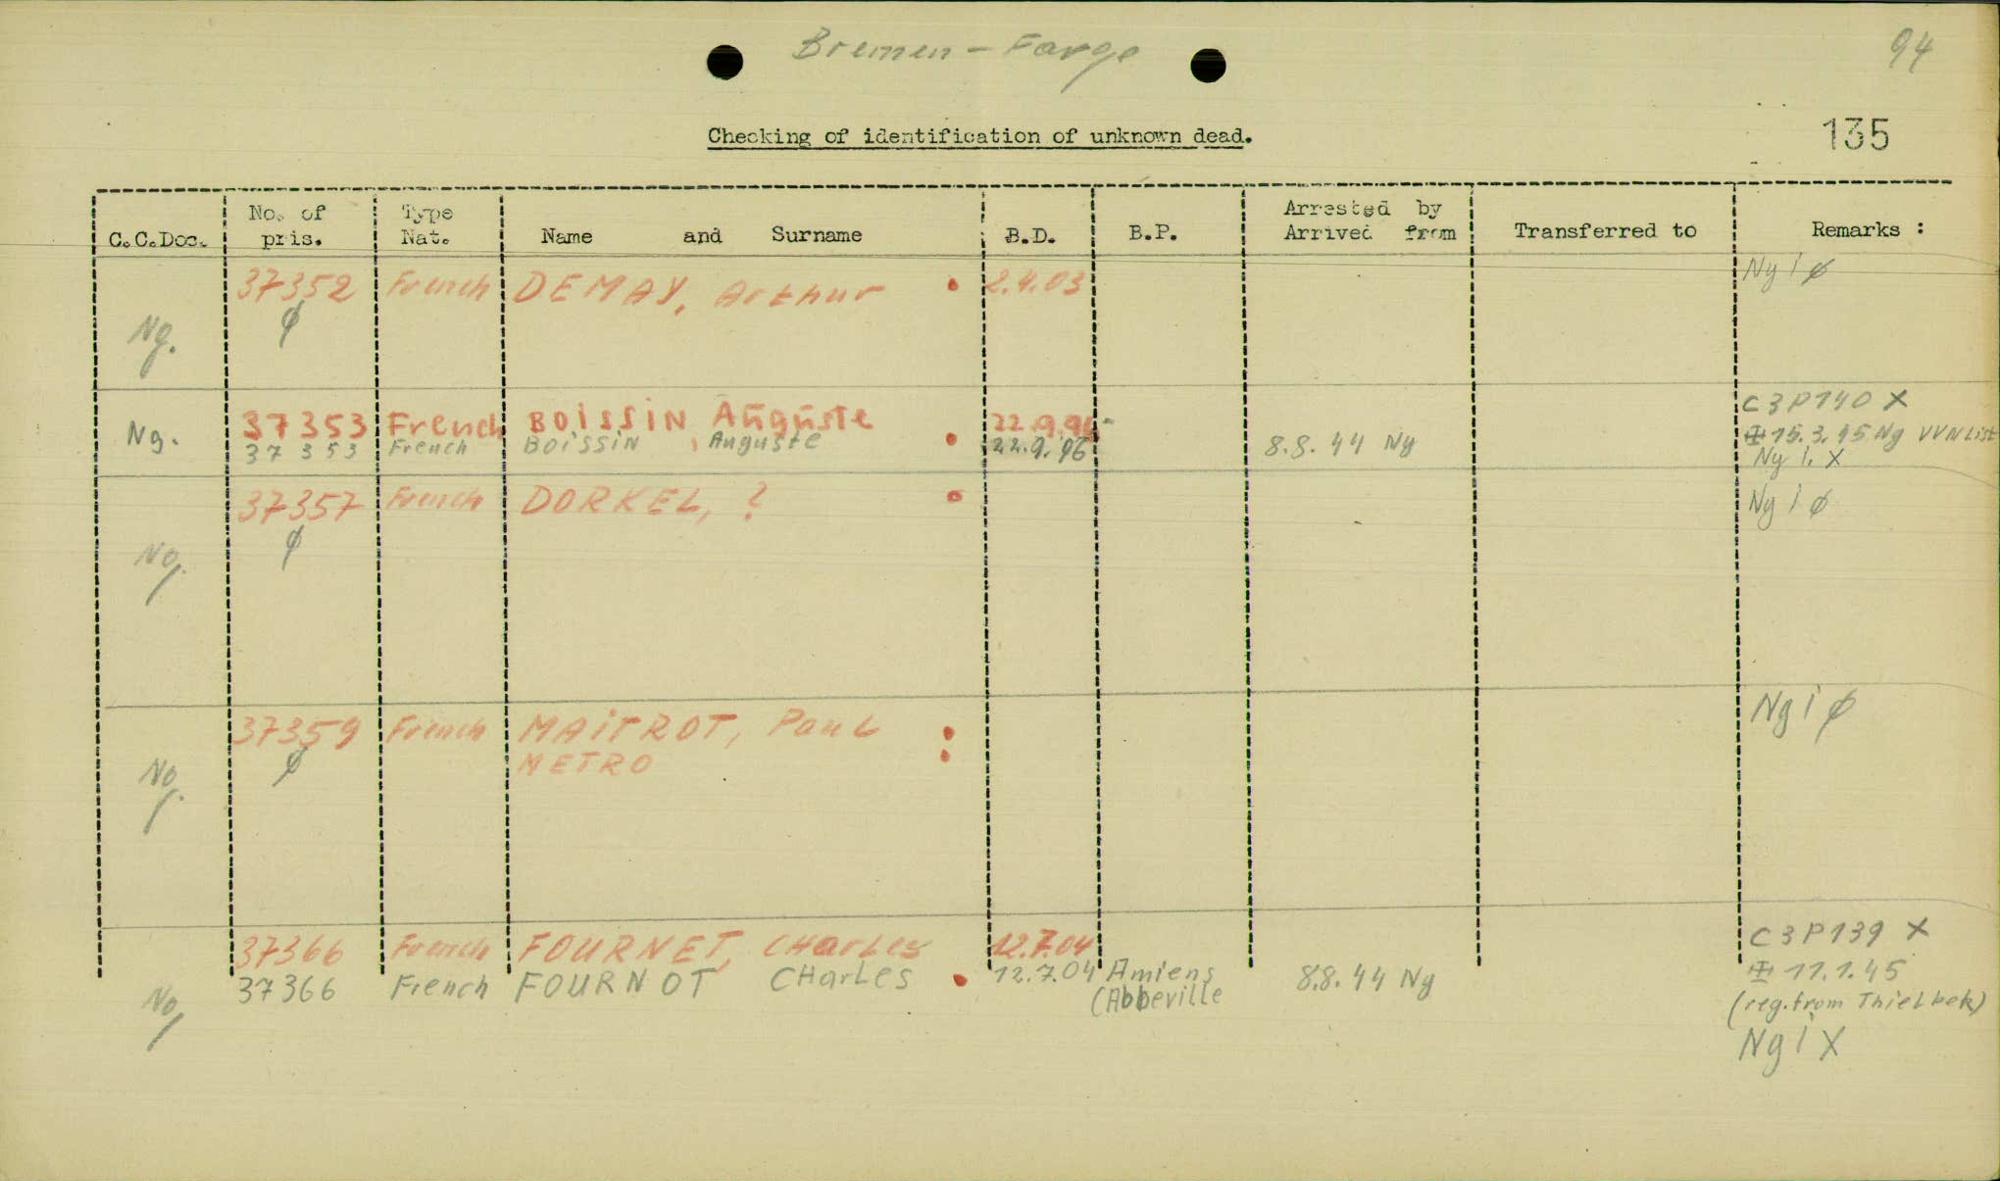 Bremen - Farge
94
Checking of identification of unknown dead.
135
C.C.Doc. No. of pris. Type Nat. Name and Surname B.D. B.P. Arrested by Arrived from Transferred to Remarks :
Ng. 37352 French DEMAY, Arthur 2.4.03 Ng i ø
ø
Ng. 37353 French BOiSSiN Auguste 22.9.96 C3P140 X
37 353 French BOiSSiN, Auguste 22.9.96 8.8.44 Ng 15.3.45 Ng VVN List
Ng i. X
Ng. 37357 French DORKEL, ? Ng i ø
ø
Ng. 37359 French MAiTROT, Paul Ng i ø
ø METRO
37366 French FOURNET, CHarLes 12.7.04 C3P139 X
Ng 37366 French FOURNOT CHarLes 12.7.04 Amiens 8.8.44 Ng 11.1.45
(Abbeville (reg. from Thielbek)
Ng i X